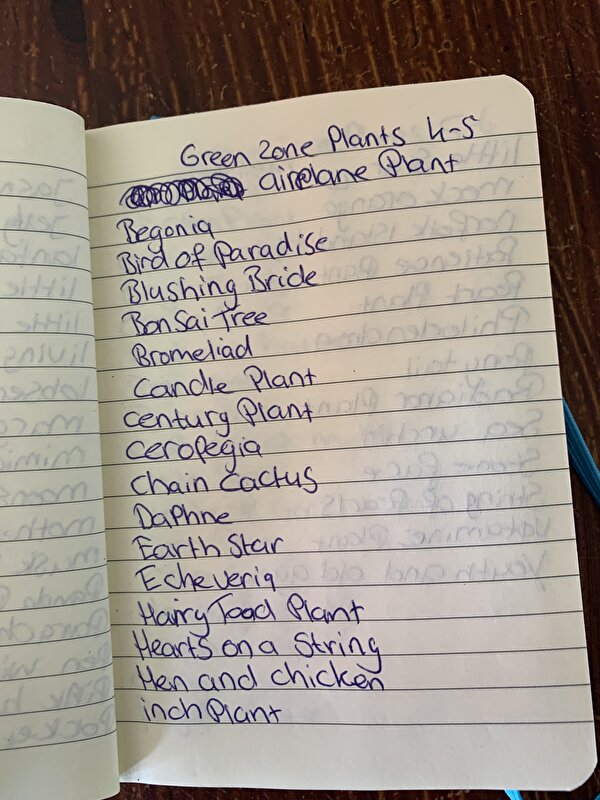 Green Zone Plants 4-5
airplane Plant
Begonia
Bird of Paradise
Blushing Bride
Bonsai Tree
Bromeliad
Candle Plant
century Plant
ceropegia
chain cactus
Daphne
Earth Star
Echeveria
Hairy Toad Plant
Hearts on a String
Hen and chicken
inch Plant